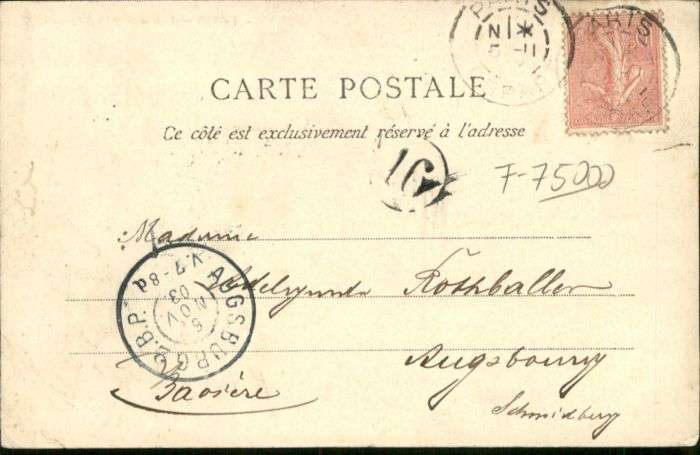 PARIS
PARIS
CARTE POSTALE
Ce côté est exclusivement réservé à l'adresse
16
F-75000
Madame
Adelgunde Rothballer
AUGSBURG 2 B.P.
V. 7-8
6
NOV
03
Augsbourg
Bavière
Schmidberg